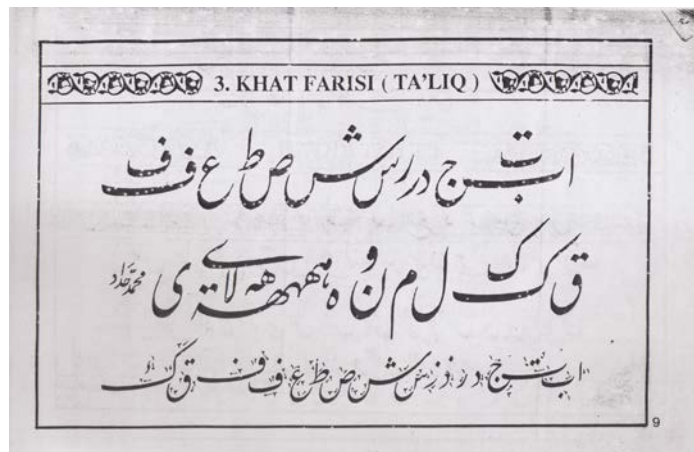 3. KHAT FARISI ( TA'LIQ )
ا ب ت ج د ر س ش ص ط ع ف ف
ق ک ک ل م ن و ه ههه هه لا ة ی ے
محمد حداد
ا ب ت ج د ر ذ ز س ش ص ط ع ف ف ق ک
9